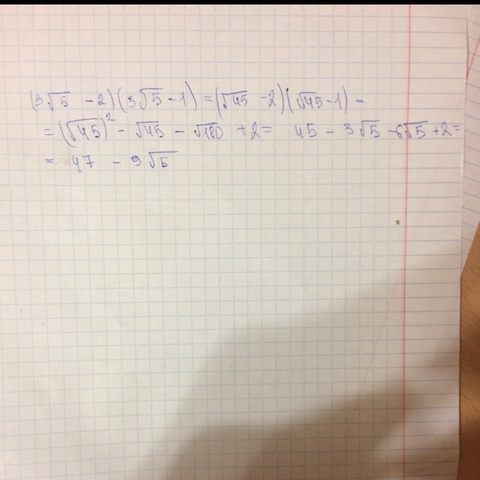 (3√5 - 2)(3√5 - 1) = (√45 - 2)(√45 - 1) =
= (√45)² - √45 - √180 + 2 = 45 - 3√5 - 6√5 + 2 =
= 47 - 9√5